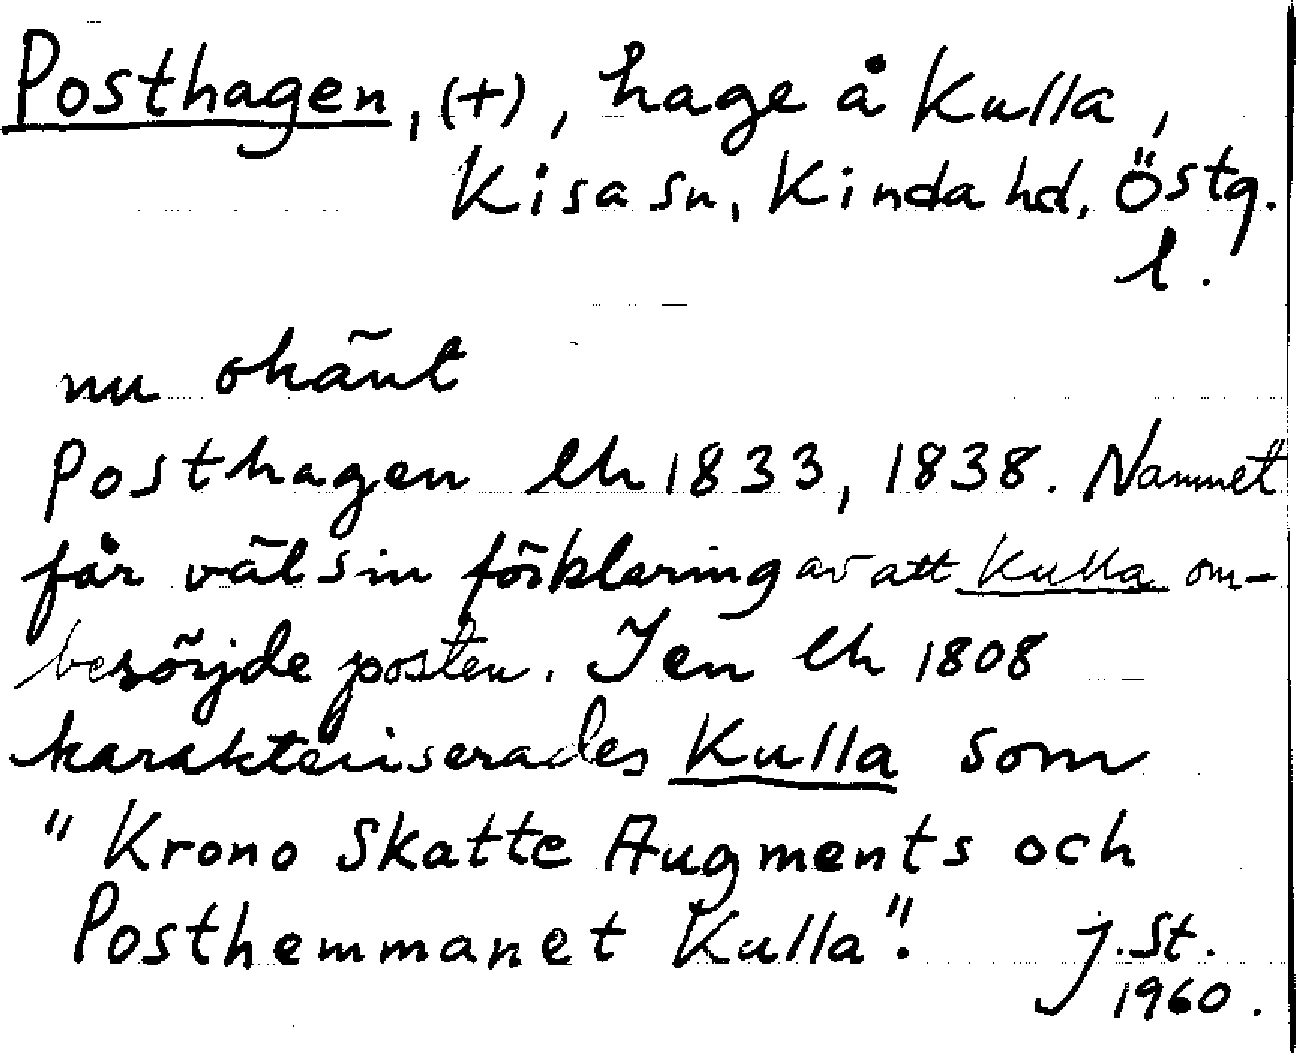 Posthagen, (+), hage å Kulla,
Kisa sn, Kinda hd, Östg.
l.
nu okänt
Posthagen lh 1833, 1838. Namnet
får väl sin förklaring av att Kulla om-
besörjde posten. I en lh 1808
karakteriserades Kulla som
"Krono Skatte Augments och
Posthemmanet Kulla".
J. St.
1960.